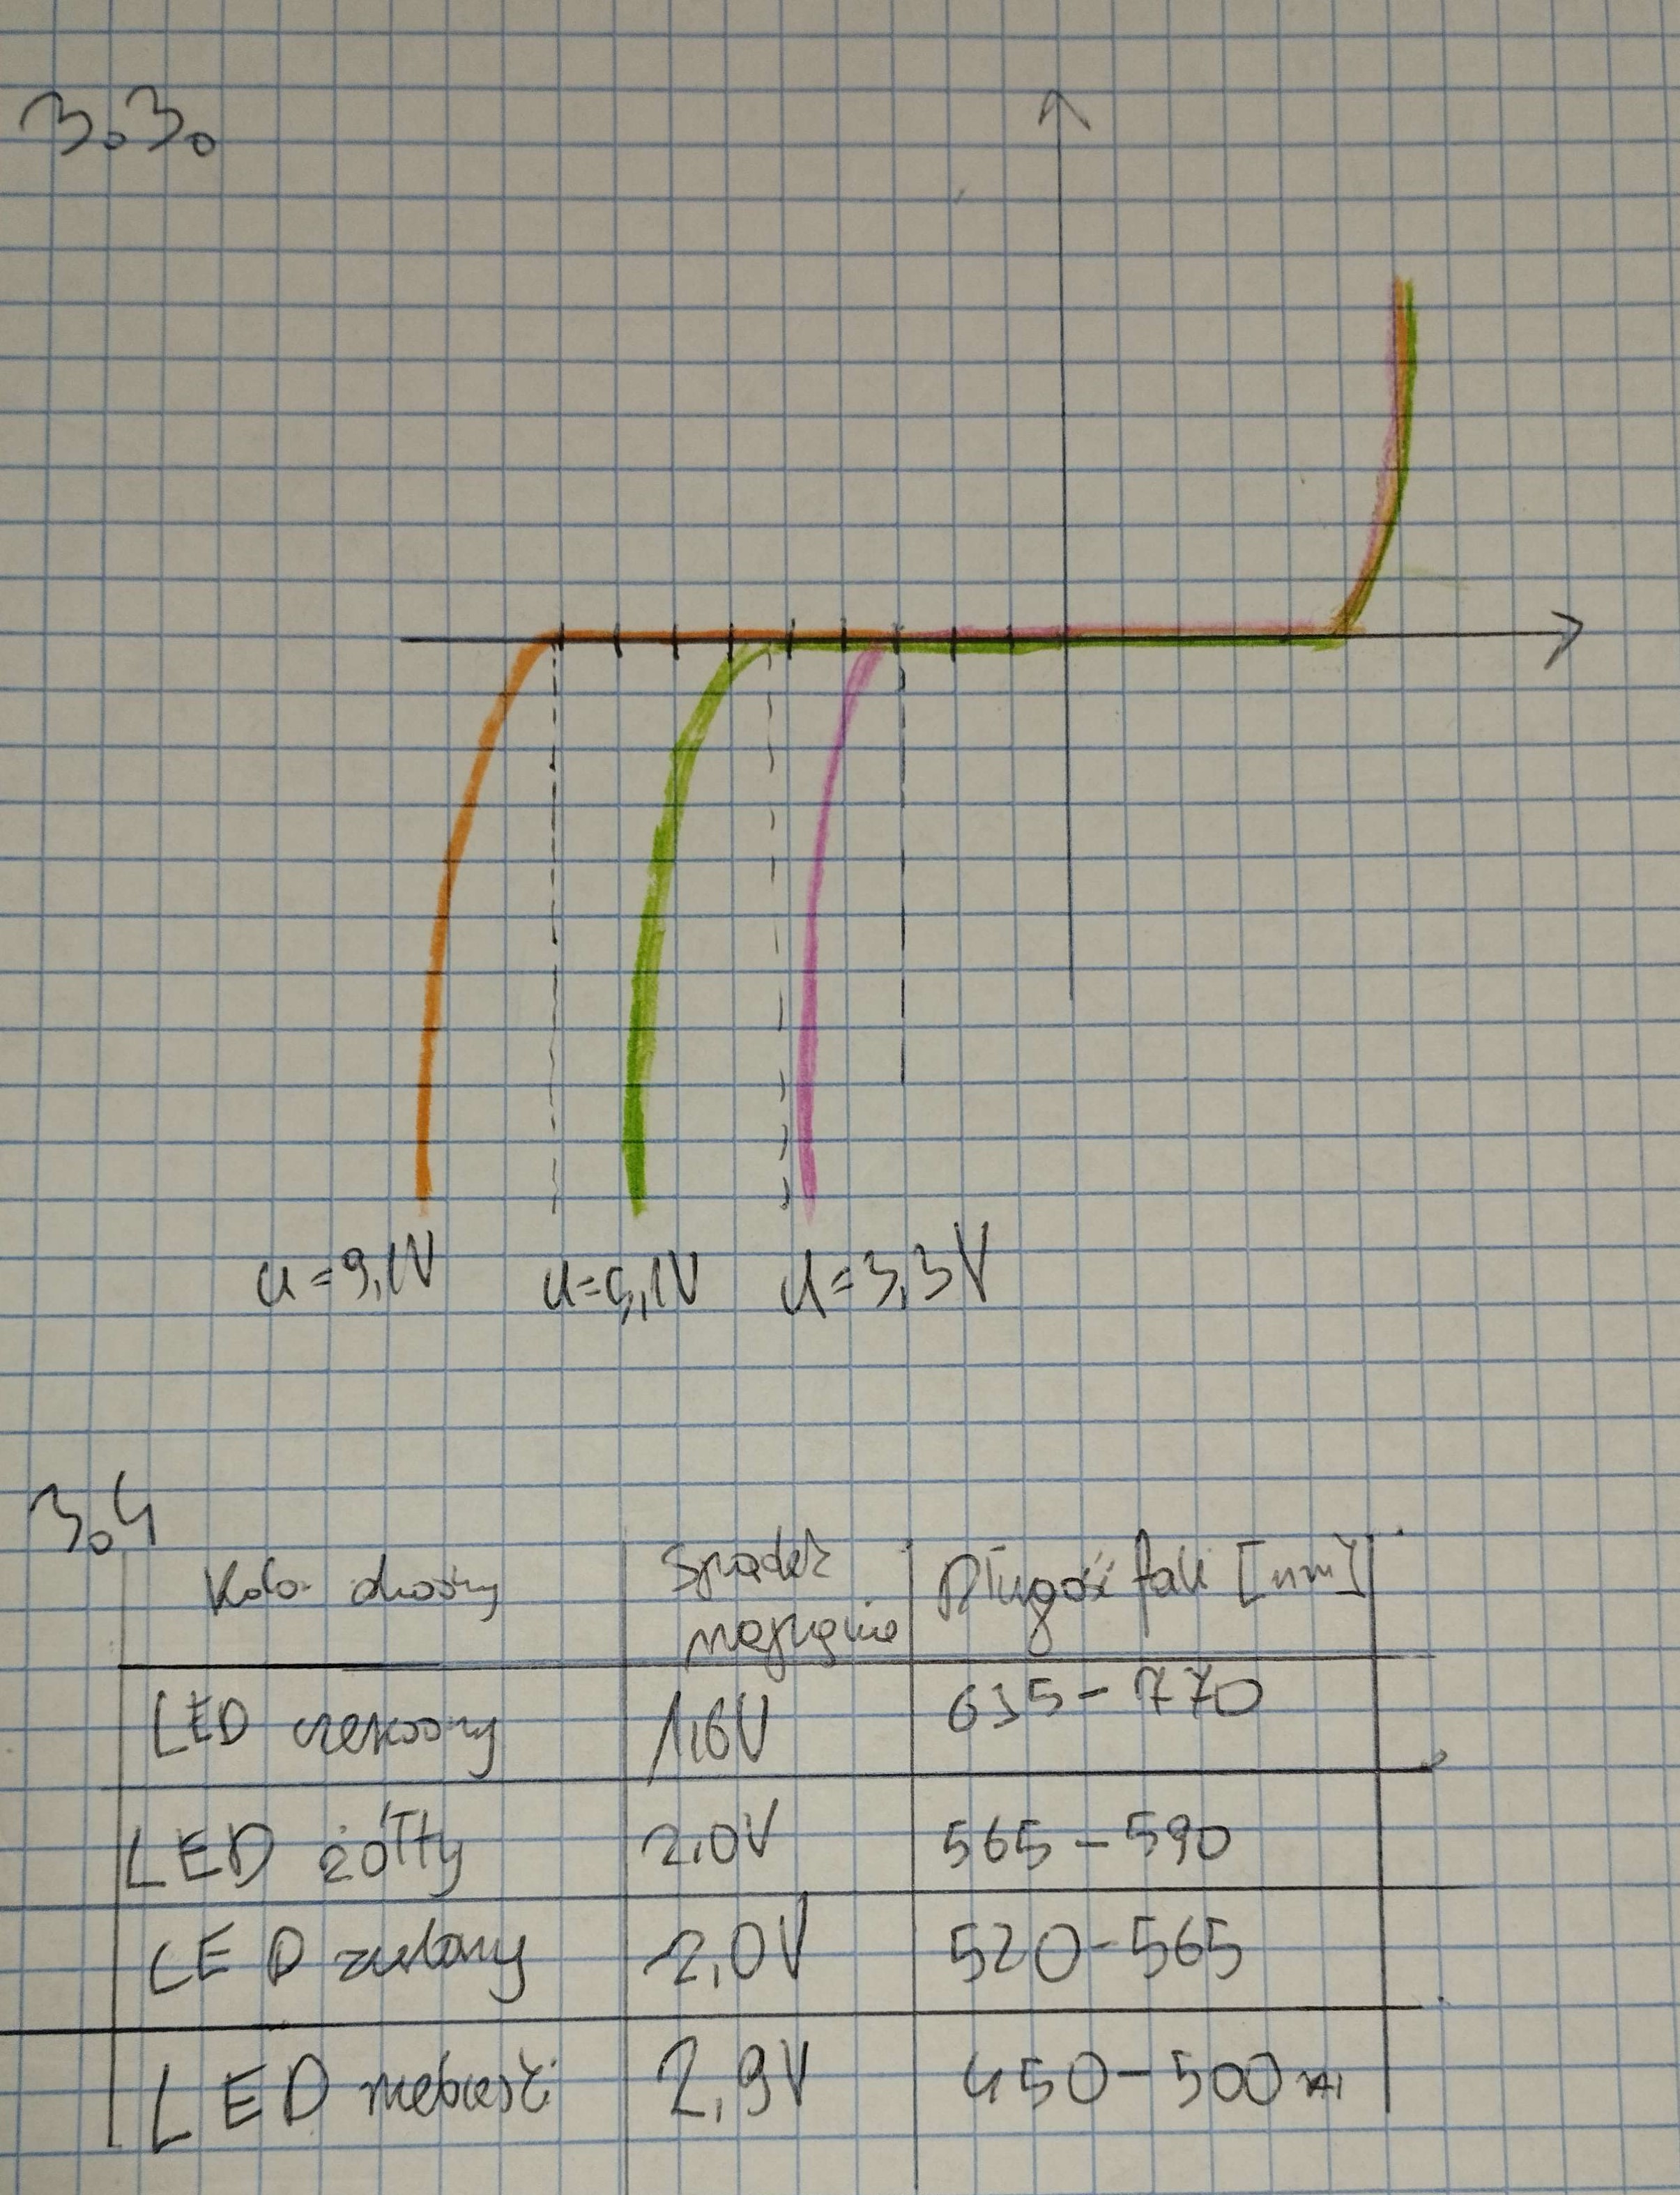 3.3.
U=9,1V U=5,1V U=3,3V
3.4
Kolor diody Spadek napięcia Długość fali [nm]
LED czerwony 1,6V 635-770
LED żółty 2,0V 565-590
LED zielony 2,0V 520-565
LED niebieski 2,9V 450-500 nm